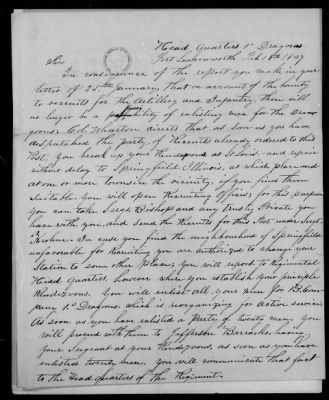 Head Quarters 1st Dragoons
Fort Leavenworth Feb 18th 1847
Sir
In consequence of the report you made in your
letter of 25th January that on account of the bounty
to recruits for the Artillery and Infantry there will
no longer be a probability of enlisting men for the Dra
goons Col. Wharton directs that as soon as you have
despatched the party of Recruits already ordered to this
Post, you break up your Rendezvous at St Louis, and repair
without delay to Springfield Illinois, at which place and
at one or more towns in the vicinity, if you find them
Suitable you will open Recruiting offices; for this purpose
you can take Sergt Bishop and any trusty Private you
have with you, and send the Recruits for this Post under Sergt.
In case you find the neighbourhood of Springfield
unfavorable for recruiting you are authorized to change your
Station to some other place; you will report to Regimental
Head Quarters however where you establish your principle
Rendezvous. You will enlist all your men for B. Com
pany 1st Dragoons which is reorganizing for Active service
As soon as you have enlisted a Party of twenty men, you
will proceed with them to Jefferson Barracks, leaving
your Sergeant at your Rendezvous, as soon as you have
enlisted twenty men, you will communicate that fact
to the Head Quarters of the Regiment.